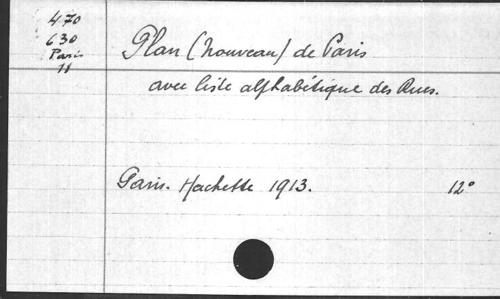 470
630
Paris
11
Plan (nouveau) de Paris
avec liste alphabétique des Rues.
Paris. Hachette 1913. 12°